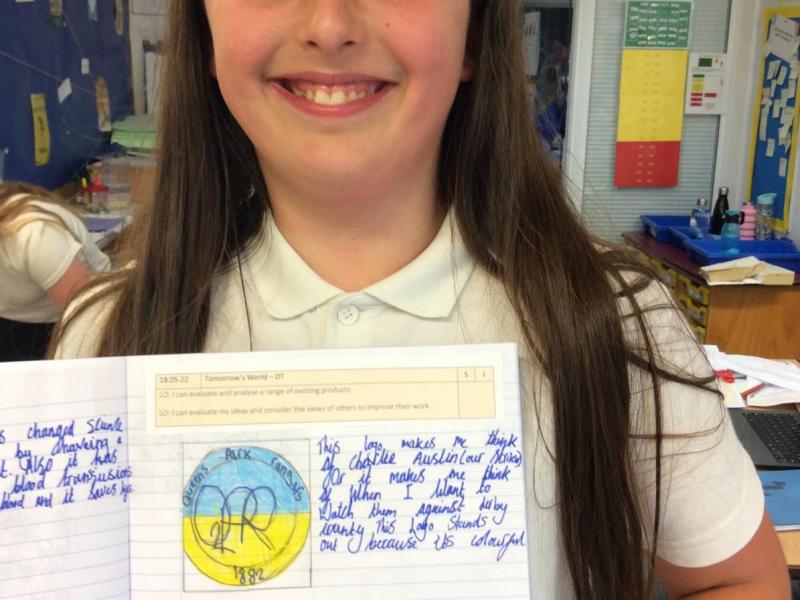 18.05.22 Tomorrow's World – DT S I
LO: I can evaluate and analyse a range of existing products.
LO: I can evaluate my ideas and consider the views of others to improve their work
s changed
by
t. Also it has
blood transfusions
blood and it saves
Queens Park Rangers
1882
This logo makes me think
of Charlie Austin (our striker)
Or it makes me think
of when I went to
watch them against derby
county This Logo Stands
out because its colourful